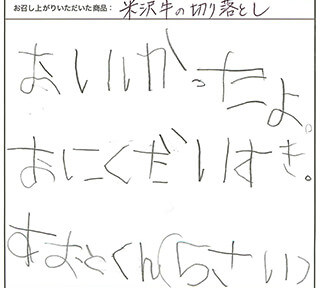 お召し上がりいただいた商品: 米沢牛の切り落とし
おいしかったよ。
おにくだいすき。
(5さい)